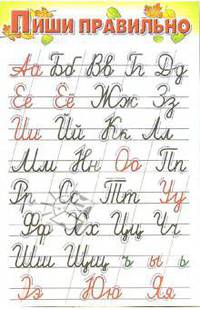 Пиши правильно
Аа Бб Вв Гг Дд
Ее Ёё Жж Зз
Ии Йй Кк Лл
Мм Нн Оо Пп
Рр Сс Тт Уу
Фф Хх Цц Чч
Шш Щщ ъ ы ь
Ээ Юю Яя